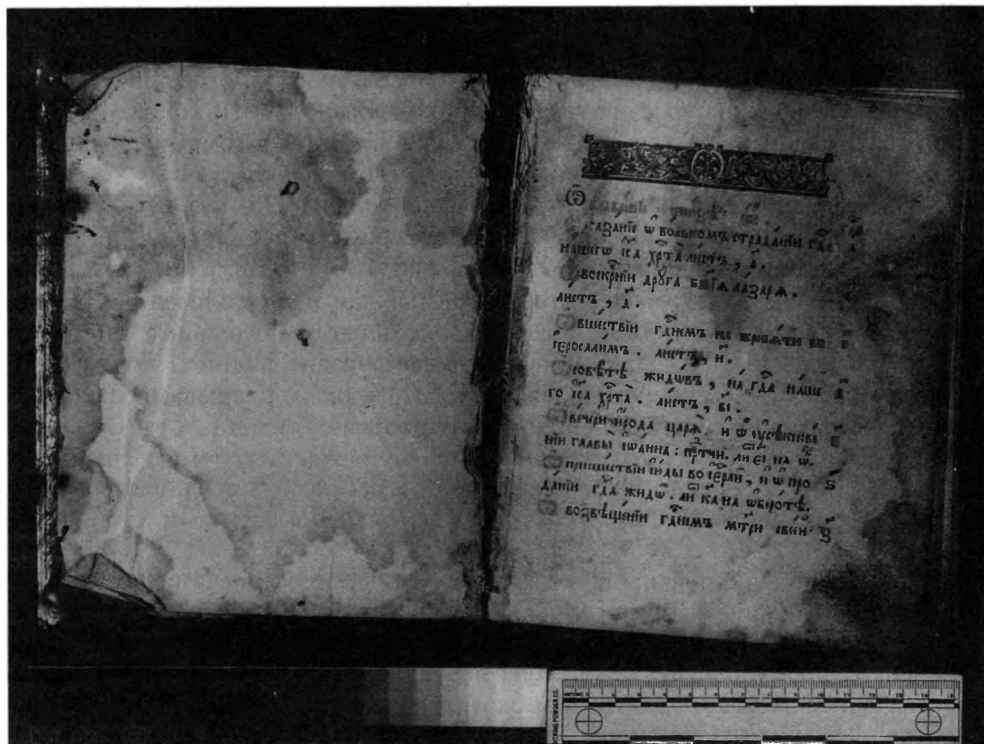 Ѿ
сказа́нїе ѡ҆ во́льномъ страда́нїи гдⷭ҇а а҃
на́шегѡ і҆с҃а хрⷭ҇та̀ ли́стъ, а҃.
Ѡ҆ воскр҃нїи дрꙋ́га бж҃їѧ ла́зарѧ.
ли́стъ, д҃.
Ѡ҆ вше́ствїи гдⷭ҇немъ на жребѧ́ти во г҃
і҆ерⷭ҇осали́мъ. ли́стъ, и҃.
Ѡ҆ совѣ́тѣ жидѡ́въ, на́ гдⷭ҇а на́ше д҃
го і҆с҃а хрⷭ҇та̀. ли́стъ, в҃і.
Ѡ҆ ве́чери и҆́рода царѧ̀ и҆ ѡ҆ ᲂу҆сѣкнове́ є҃
нїи главы̀ і҆ѡа́нна: прⷣтчи. ли є҃і на ѡ҆.
Ѡ҆ прише́ствїи і҆ю́ды во і҆ерⷭ҇ли́, и҆ ѡ҆ про ѕ҃
да́нїи гдⷭ҇а жидѡ̑. ли к҃а на ѡ҆боро́тѣ.
Ѡ҆ возвѣще́нїи гдⷭ҇немъ мт҃ри свое́и з҃